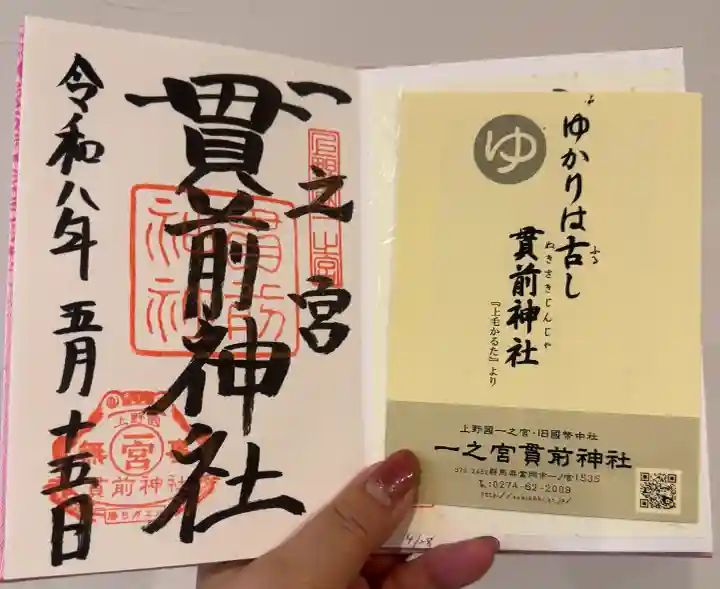 一之宮
貫前神社
令和八年 五月 十五日
上野國
一宮
無事
貫前神社
ゆ
ゆかりは古し
ふる
貫前神社
ぬきさきじんじゃ
『上毛かるた』より
上野國一之宮・旧國幣中社
一之宮貫前神社
群馬県富岡市一ノ宮1535
℡:0274-62-2009